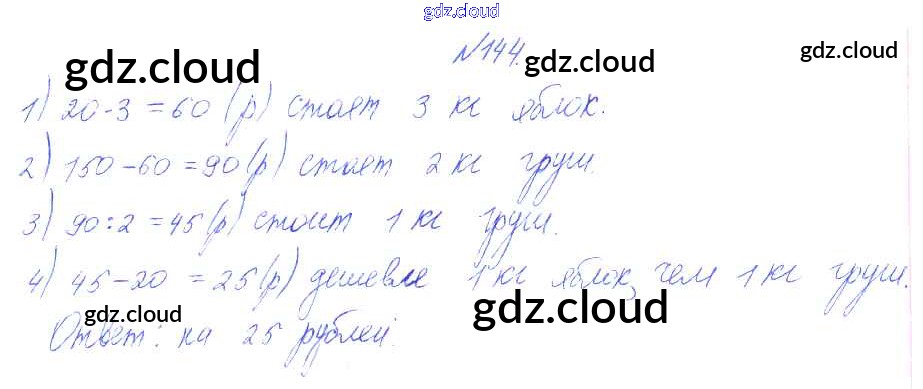 gdz.cloud
№144.
gdz.cloud gdz.cloud gdz.cloud
1) 20·3=60 (р) стоят 3 кг яблок.
2) 150-60=90(р) стоят 2 кг груш.
3) 90:2=45(р) стоит 1 кг груш.
4) 45-20 =25(р) дешевле 1 кг яблок, чем 1 кг груш.
gdz.cloud gdz.cloud
Ответ: на 25 рублей.